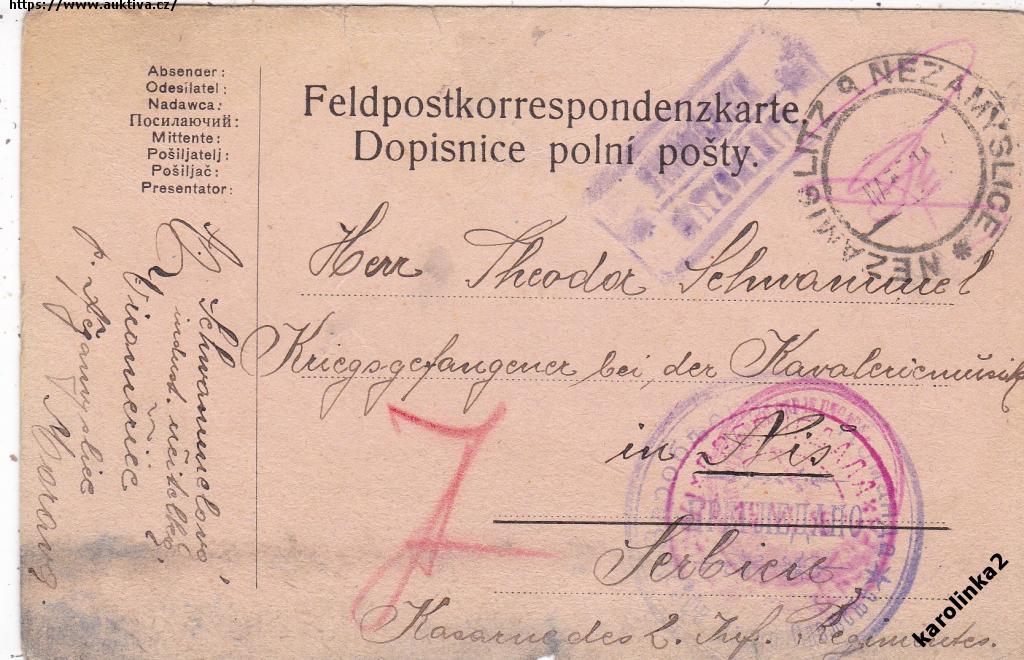 https://www.auktiva.cz/
Absender:
Odesílatel:
Nadawca:
Посилаючий:
Mittente:
Pošiljatelj:
Pošiljač:
Presentator:
Feldpostkorrespondenzkarte.
Dopisnice polní pošty.
NEZAMISLITZ NEZAMYSLICE
Herr Theodor Schwammel
Kriegsgefangener bei der Kavaleriemusik
in Niš
Serbien
Kasarne des 2. Inf. Regimentes.
ПРЕГЛЕДАНО
Schwammelova,
indust. učitelka
Vicoměřice
p. Nezamyslice
Morava.
karolinka2